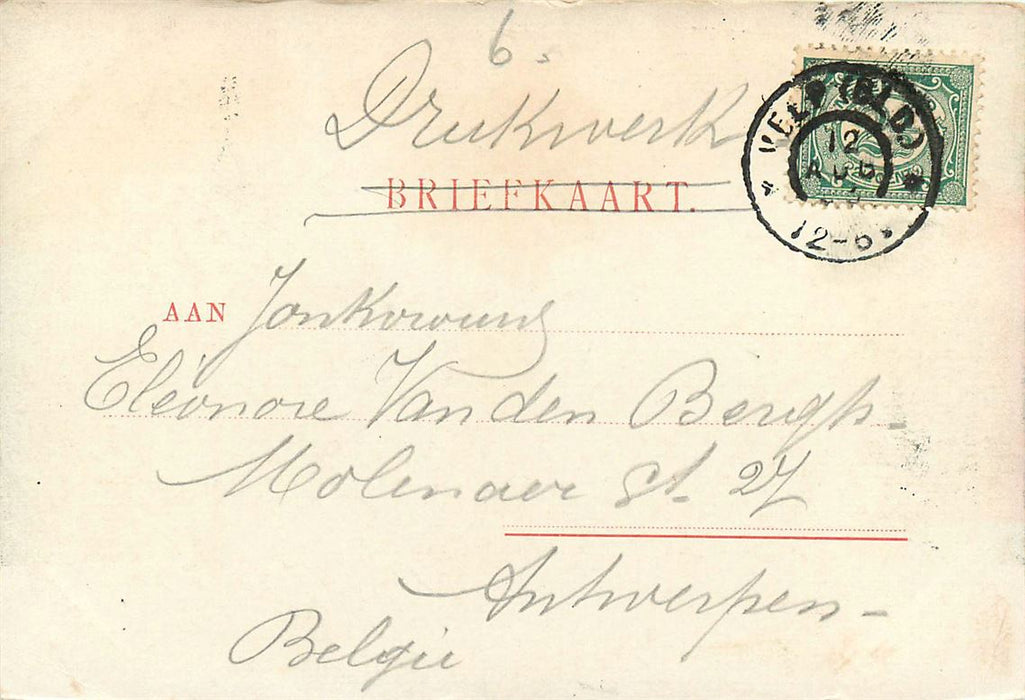 6
Drukwerk
BRIEFKAART.
VELP (GLD.)
12
AUG
12-6
AAN Jonkvrouw
Eléonore Van den Bergh-
Molenaer st. 27
Antwerpen-
België